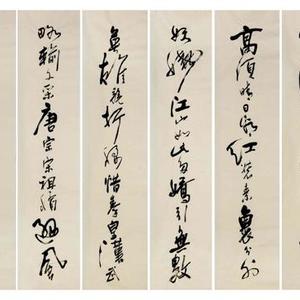 高須晴日看紅裝素裹分外
妖嬈江山如此多嬌引無數
英雄競折腰惜秦皇漢武
略輸文采唐宗宋祖稍遜風